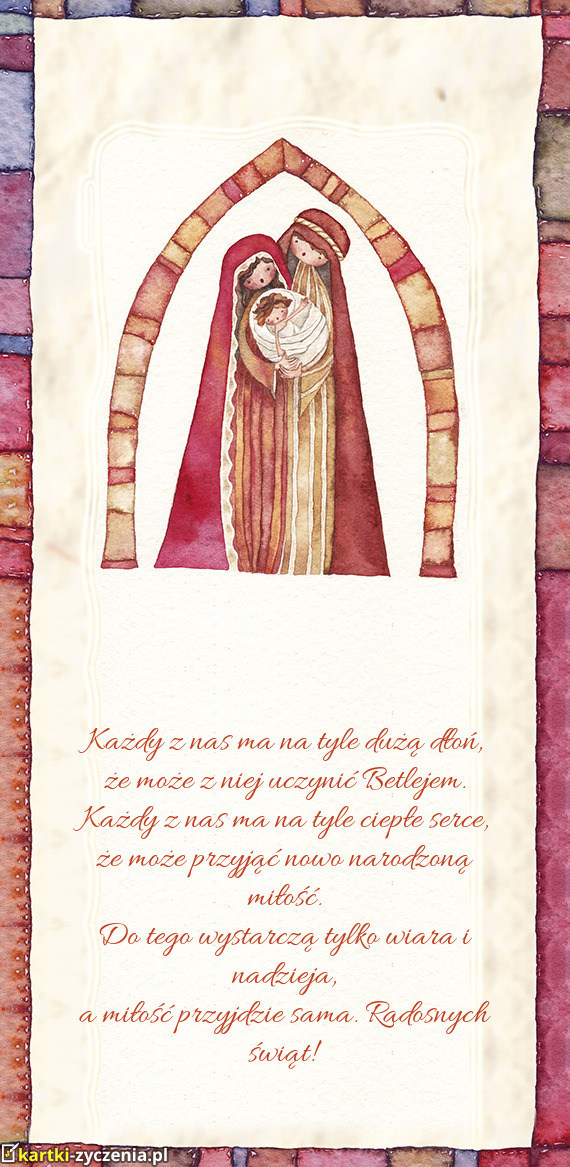 Każdy z nas ma na tyle dużą dłoń,
że może z niej uczynić Betlejem.
Każdy z nas ma na tyle ciepłe serce,
że może przyjąć nowo narodzoną
miłość.
Do tego wystarczą tylko wiara i
nadzieja,
a miłość przyjdzie sama. Radosnych
świąt!
kartki-zyczenia.pl